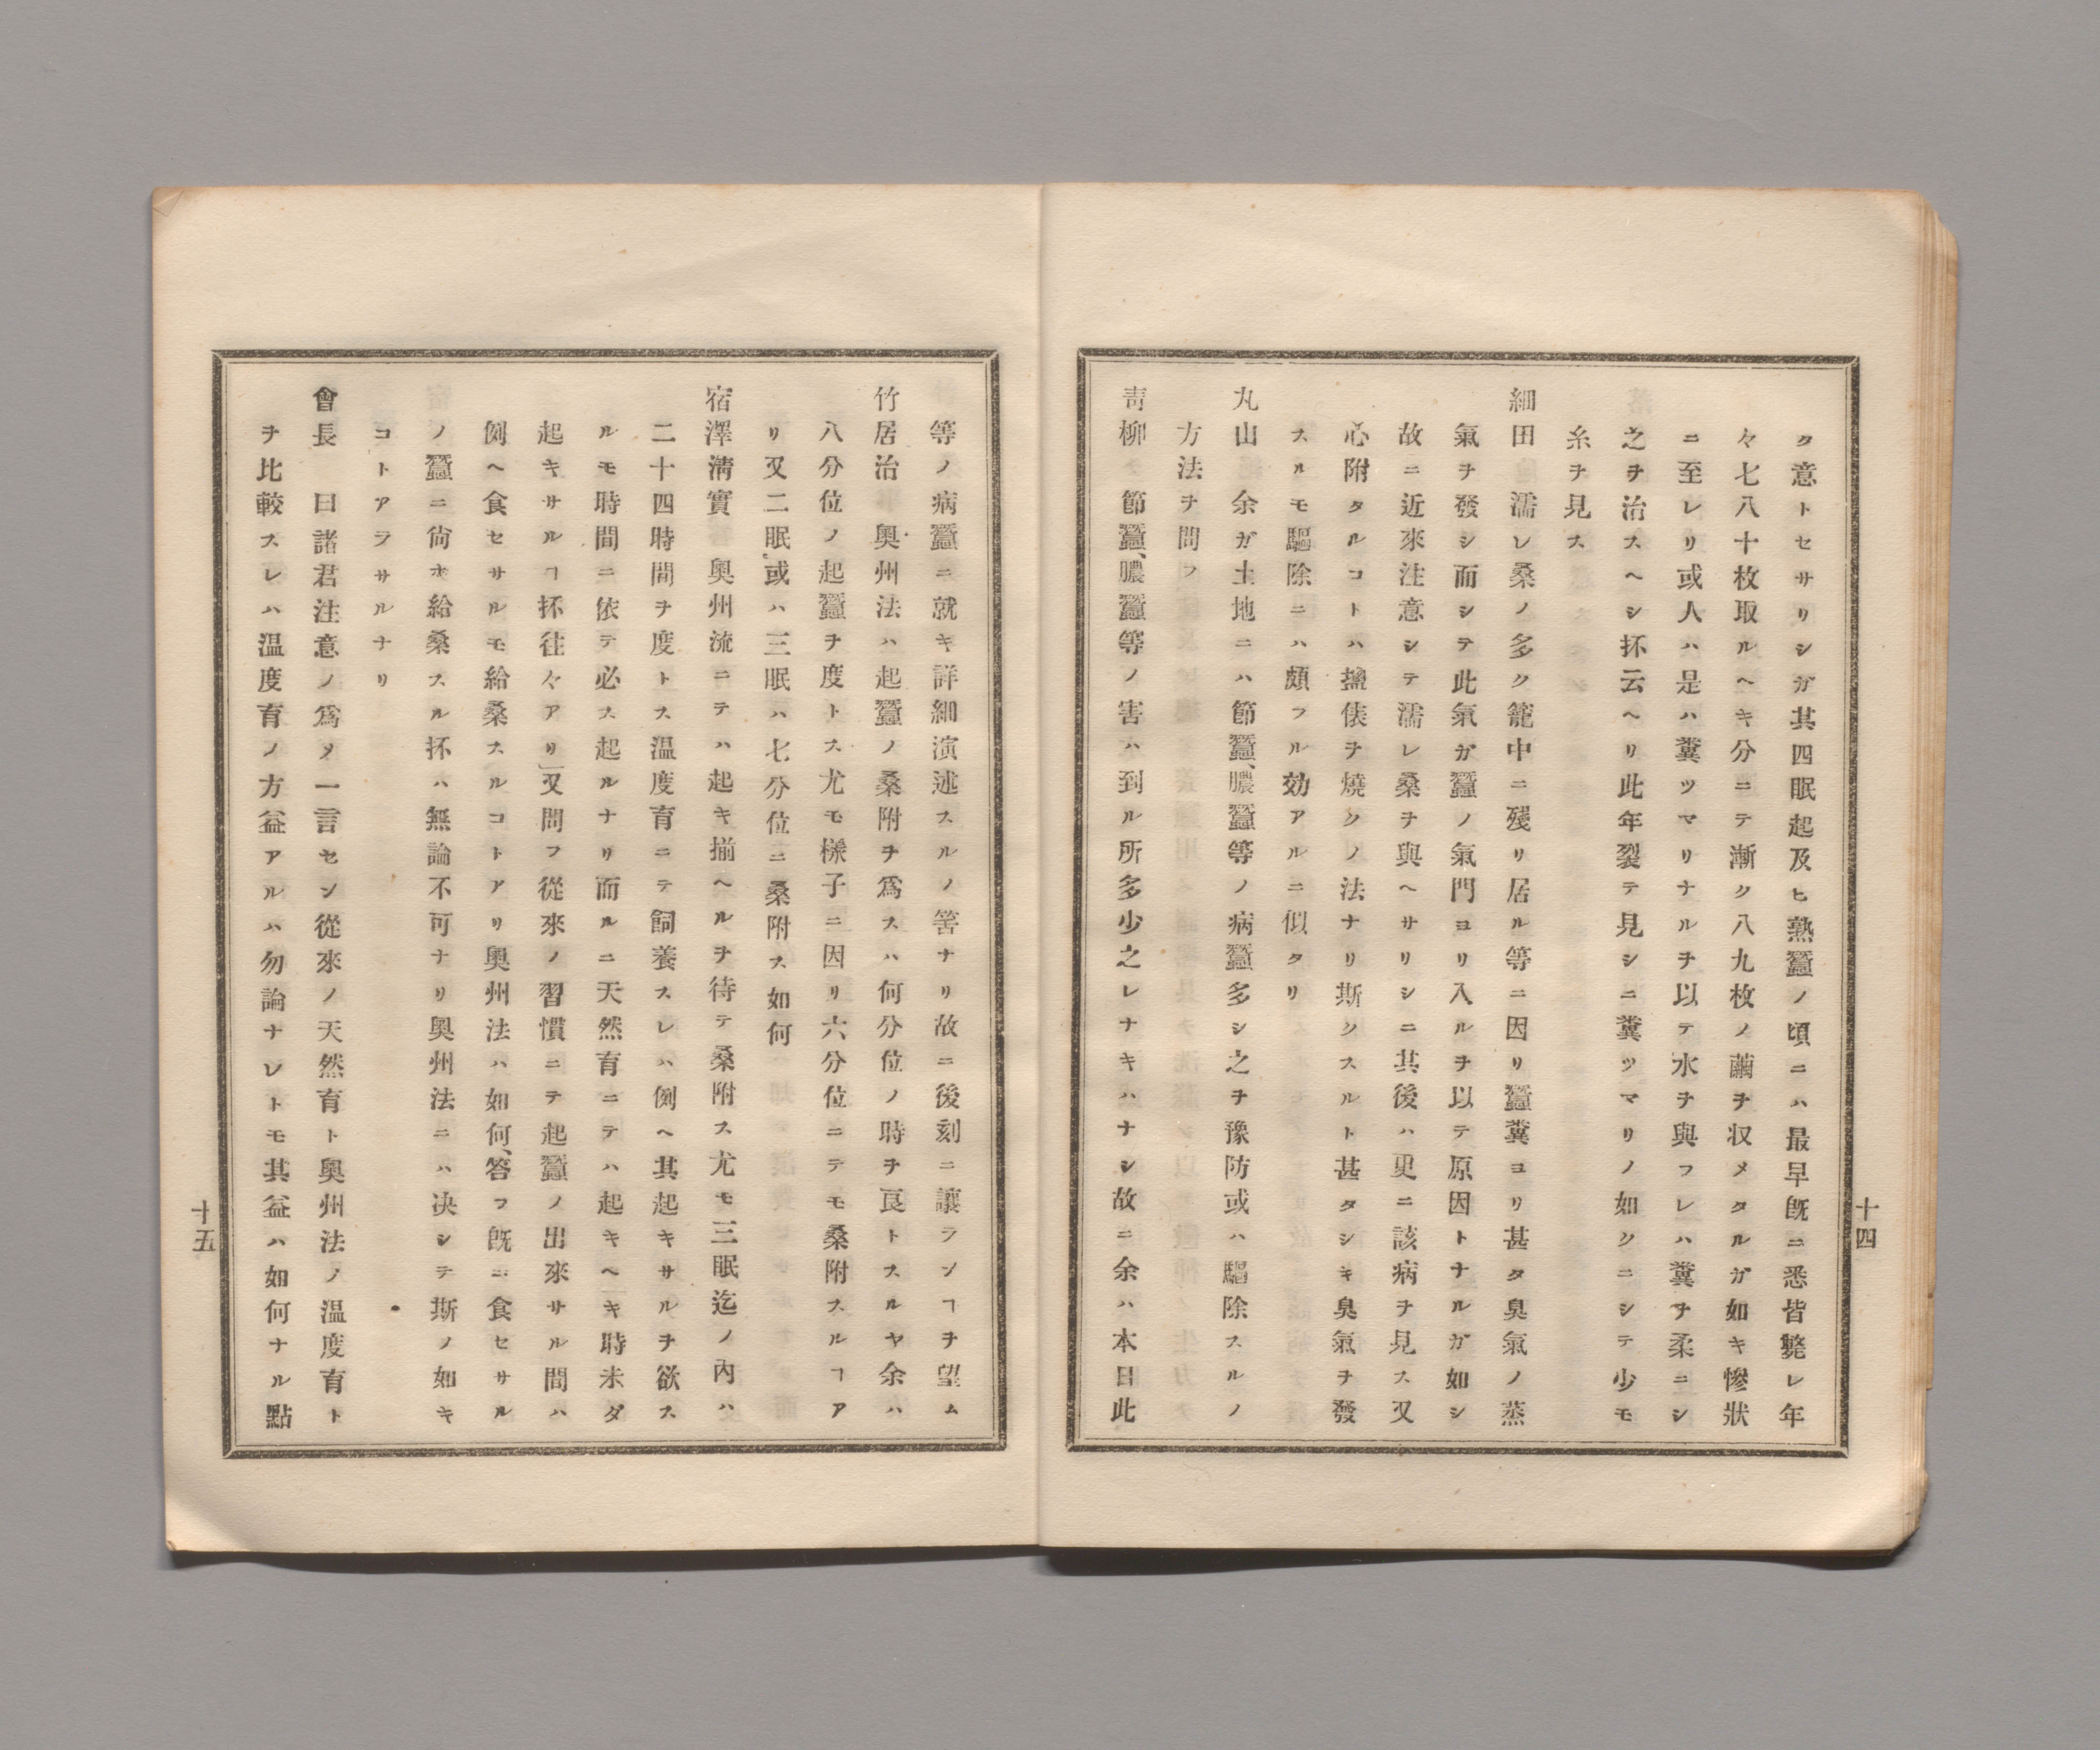 タ意トセサリシガ其四眠起及ヒ熟蠶ノ頃ニハ最早既ニ悉皆斃レ年
々七八十枚取ルヘキ分ニテ漸ク八九枚ノ繭ヲ収メタルガ如キ慘狀
ニ至レリ或人ハ是ハ糞ツマリナルヲ以テ水ヲ與フレハ糞ヲ柔ニシ
之ヲ治スヘシ抔云ヘリ此年裂テ見シニ糞ツマリノ如クニシテ少モ
糸ヲ見ス
細田　濡レ桑ノ多ク籠中ニ殘リ居ル等ニ因リ蠶糞ヨリ甚タ臭氣ノ蒸
氣ヲ發シ而シテ此氣ガ蠶ノ氣門ヨリ入ルヲ以テ原因トナルガ如シ
故ニ近來注意シテ濡レ桑ヲ與ヘサリシニ其後ハ更ニ該病ヲ見ス又
心附タルコトハ鹽俵ヲ燒クノ法ナリ斯クスルト甚タシキ臭氣ヲ發
スルモ驅除ニハ頗フル効アルニ似タリ
丸山　余ガ土地ニハ節蠶、膿蠶等ノ病蠶多シ之ヲ豫防或ハ驅除スルノ
方法ヲ問フ
靑柳　節蠶、膿蠶等ノ害ハ到ル所多少之レナキハナシ故ニ余ハ本日此
十四
等ノ病蠶ニ就キ詳細演述スルノ筈ナリ故ニ後刻ニ讓ランヿヲ望ム
竹居治　奧州法ハ起蠶ノ桑附ヲ爲スハ何分位ノ時ヲ良トスルヤ余ハ
八分位ノ起蠶ヲ度トス尤モ樣子ニ因リ六分位ニテモ桑附スルヿア
リ又二眠、或ハ三眠ハ七分位ニ桑附ス如何
宿澤淸實　奧州流ニテハ起キ揃ヘルヲ待テ桑附ス尤モ三眠迄ノ內ハ
二十四時間ヲ度トス温度育ニテ飼養スレハ側ヘ其起キサルヲ欲ス
ルモ時間ニ依テ必ス起ルナリ而ルニ天然育ニテハ起キヘキ時未ダ
起キサルヿ抔往々アリ」又問フ從來ノ習慣ニテ起蠶ノ出來サル間ハ
側ヘ食セサルモ給桑スルコトアリ奧州法ハ如何、答フ既ニ食セサル
ノ蠶ニ尙ホ給桑スル抔ハ無論不可ナリ奧州法ニハ决シテ斯ノ如キ
コトアラサルナリ
會長　曰諸君注意ノ爲メ一言セン從來ノ天然育ト奧州法ノ温度育ト
ヲ比較スレハ温度育ノ方益アルハ勿論ナレトモ其益ハ如何ナル點
十五